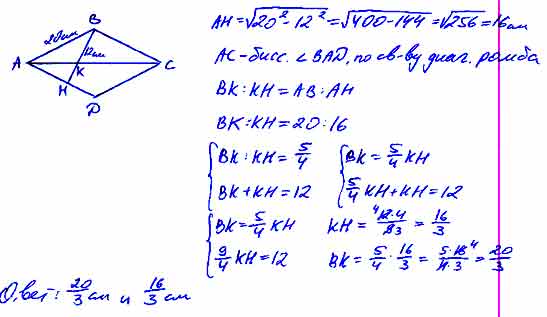 B
20см
12см
A
K
C
H
D
AH=√20²-12²=√400-144=√256=16см
AC-бисс. ∠BAD, по св-ву диаг. ромба
BK:KH=AB:AH
BK:KH=20:16
BK:KH=5/4
BK+KH=12
BK=5/4 KH
5/4 KH+KH=12
BK=5/4 KH
9/4 KH=12
KH=⁴12·4/93=16/3
BK=5/4·16/3=5·16⁴/4·3=20/3
Ответ: 20/3 см и 16/3 см